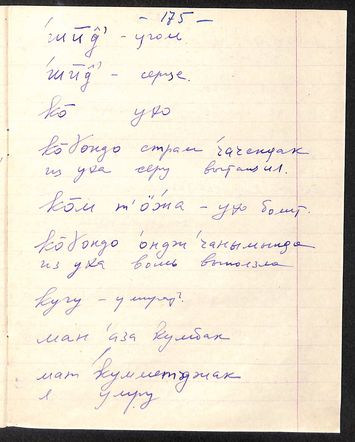 - 175 -
'ши̅д̂' - угол
'ши̅д̂' - серце.
ко̄ ухо
ко̄ɣондо страм 'чачендак
из уха серу вытащил.
ко̄м т'ӧжа - ухо болит.
ко̄ɣондо 'ондж 'чанымында
из уха вошь выползла
кугу - умират.
ман 'аза кумбак
мат 'куммеңджак
я умру